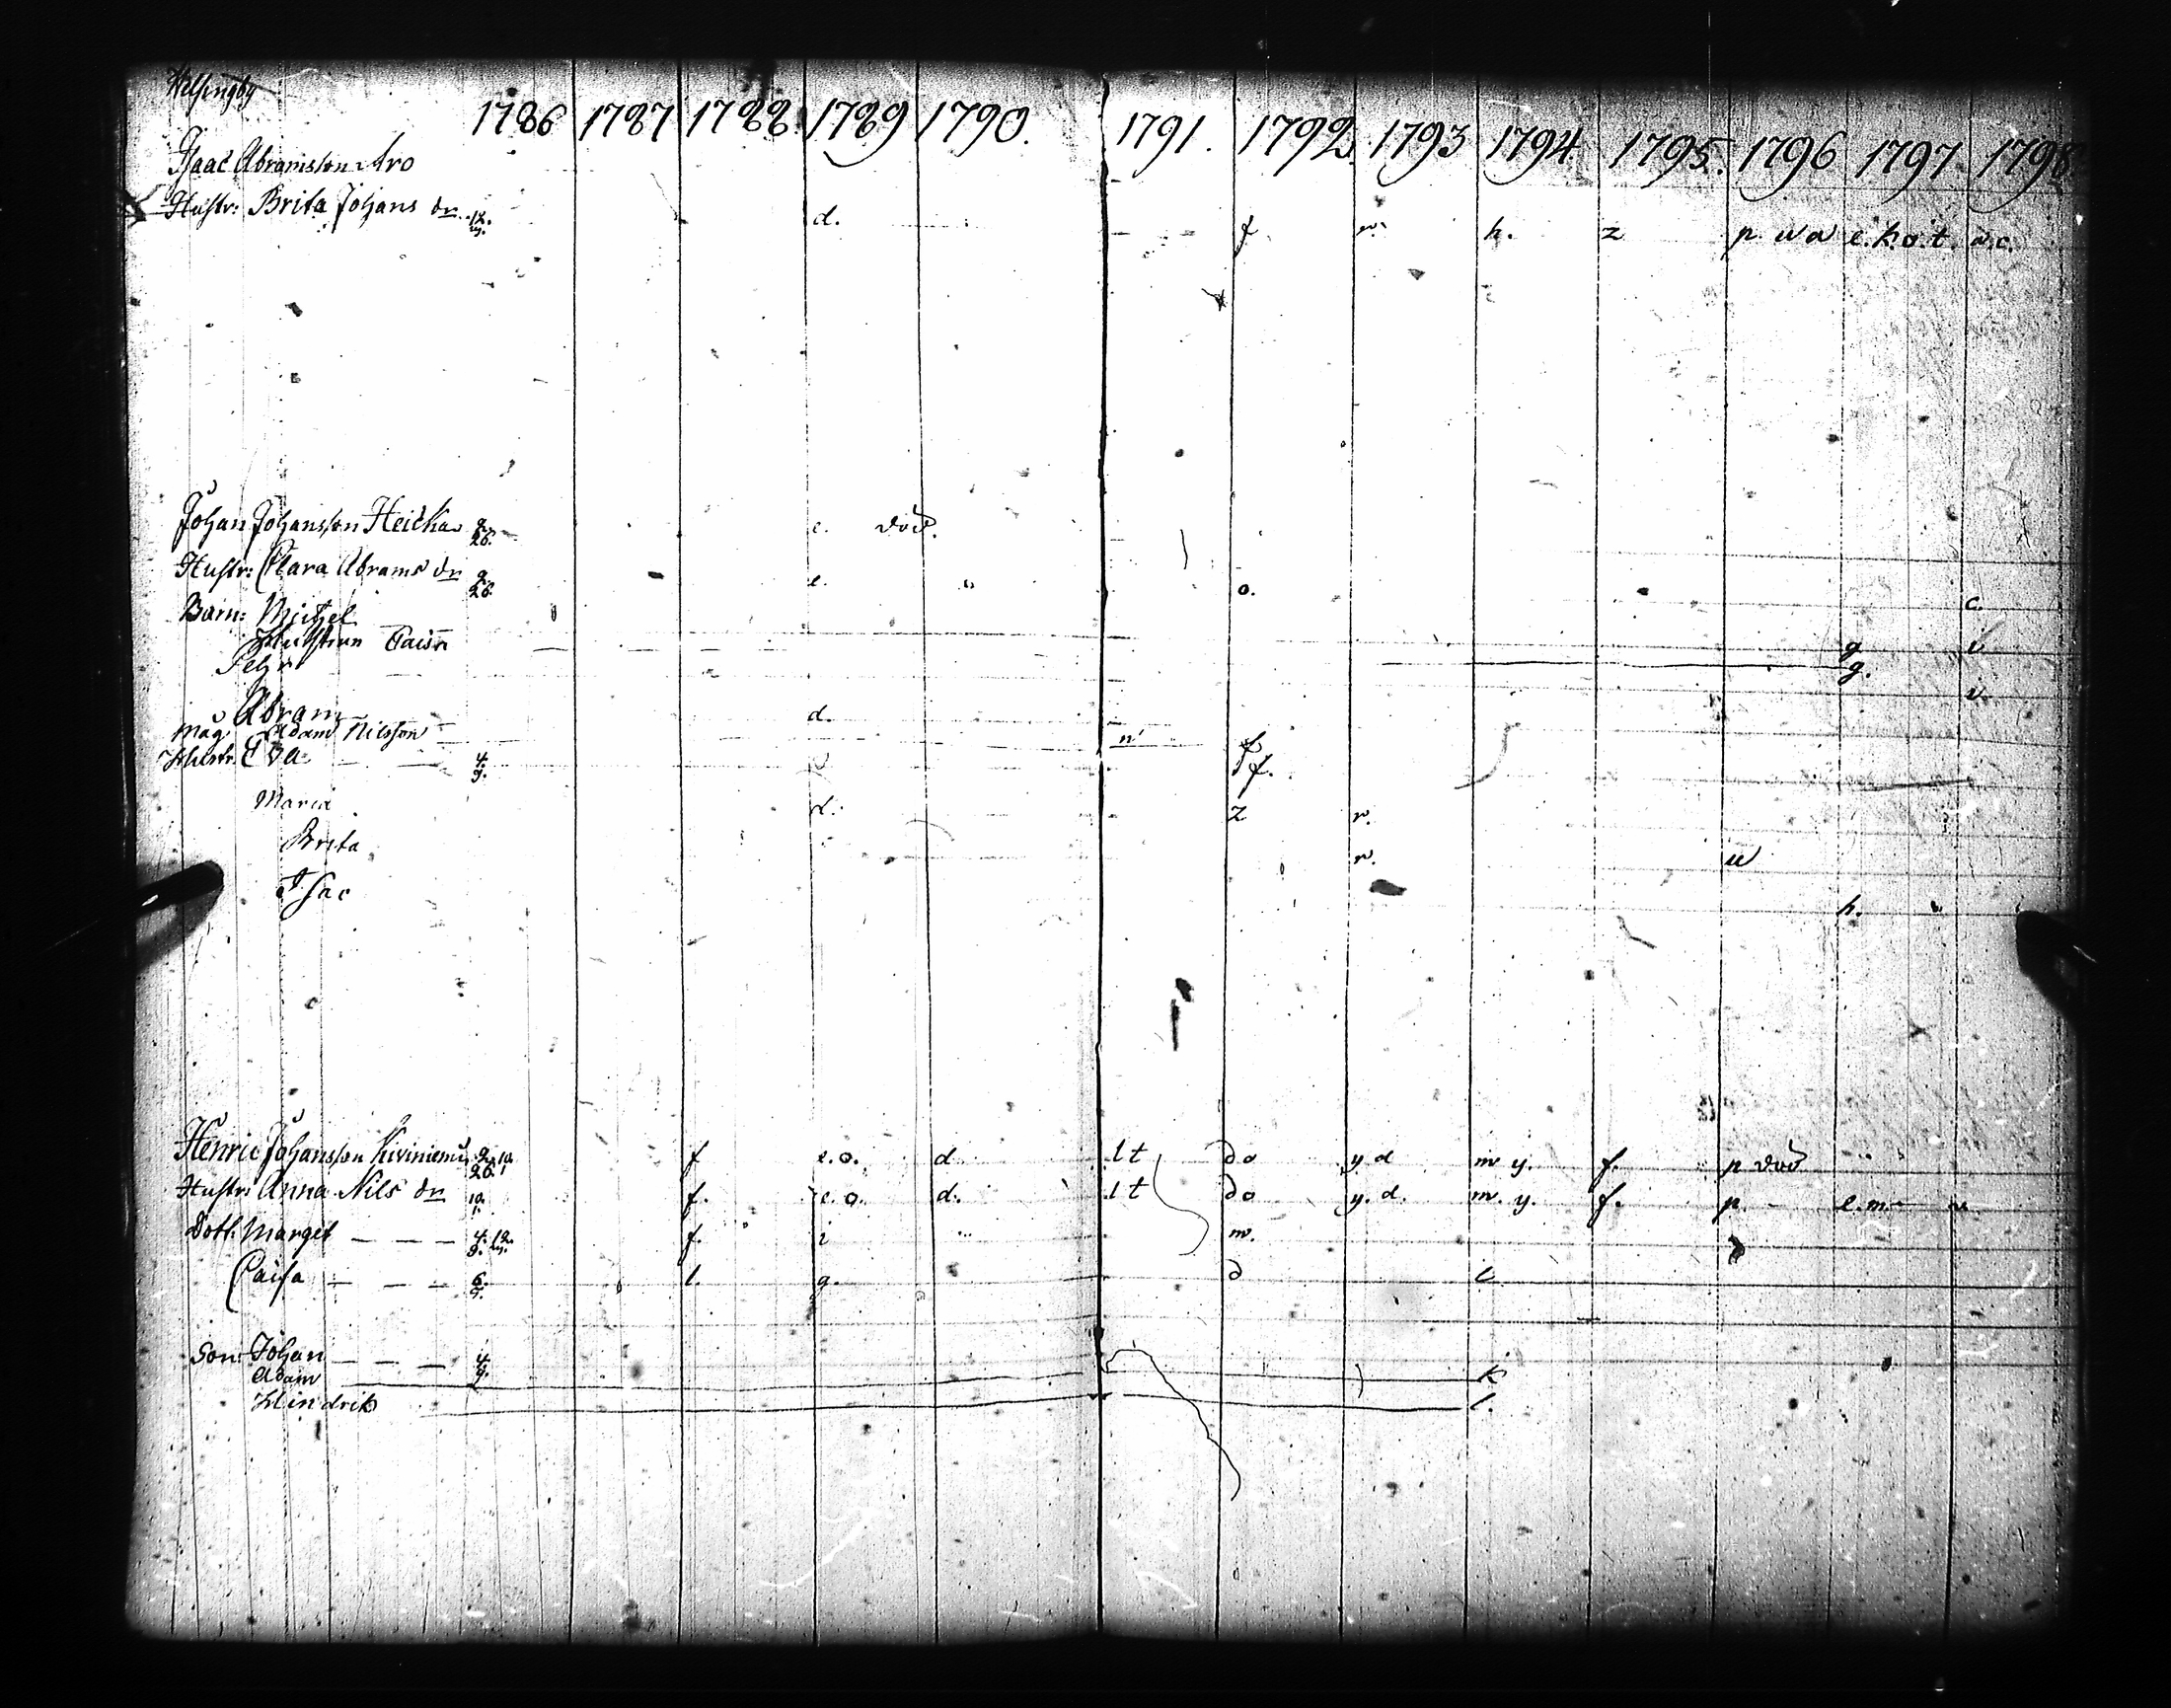 1786 1787 1788 1789 1790. 1791. 1792 1793 1794 1795. 1796 1797 1798
Isaac Abramsson Aro
Hustr: Brita Johans dr. d. f r. h. z p u a e.k.o.t. a.c.
Johan Johansson Heicka 2. 26. e. död.
Hustr: Clara Abrams dr 9 26. e. " o.
Barn: Michel c.
Hustrun Caisa g v
Pehr g.
Abram d. v.
Måg Adam Nilsson n f
Hustr. Eva — — 4. 9. f.
Maria d. z r.
Brita r. u
Isac h.
Henric Johansson Kiviniemi 2. 10. 26. 1 f e.o. d l t d o y d m y. f. p död
Hustr: Anna Nils dr 10. 1. f. e. o. d. l t d o y. d. m. y. f. p. e.m.
Dott: Marget — — — f. i m.
Caisa — — — 6. l. g. d c
Son: Johan — — — 4.
Adam k
Hindrik l.